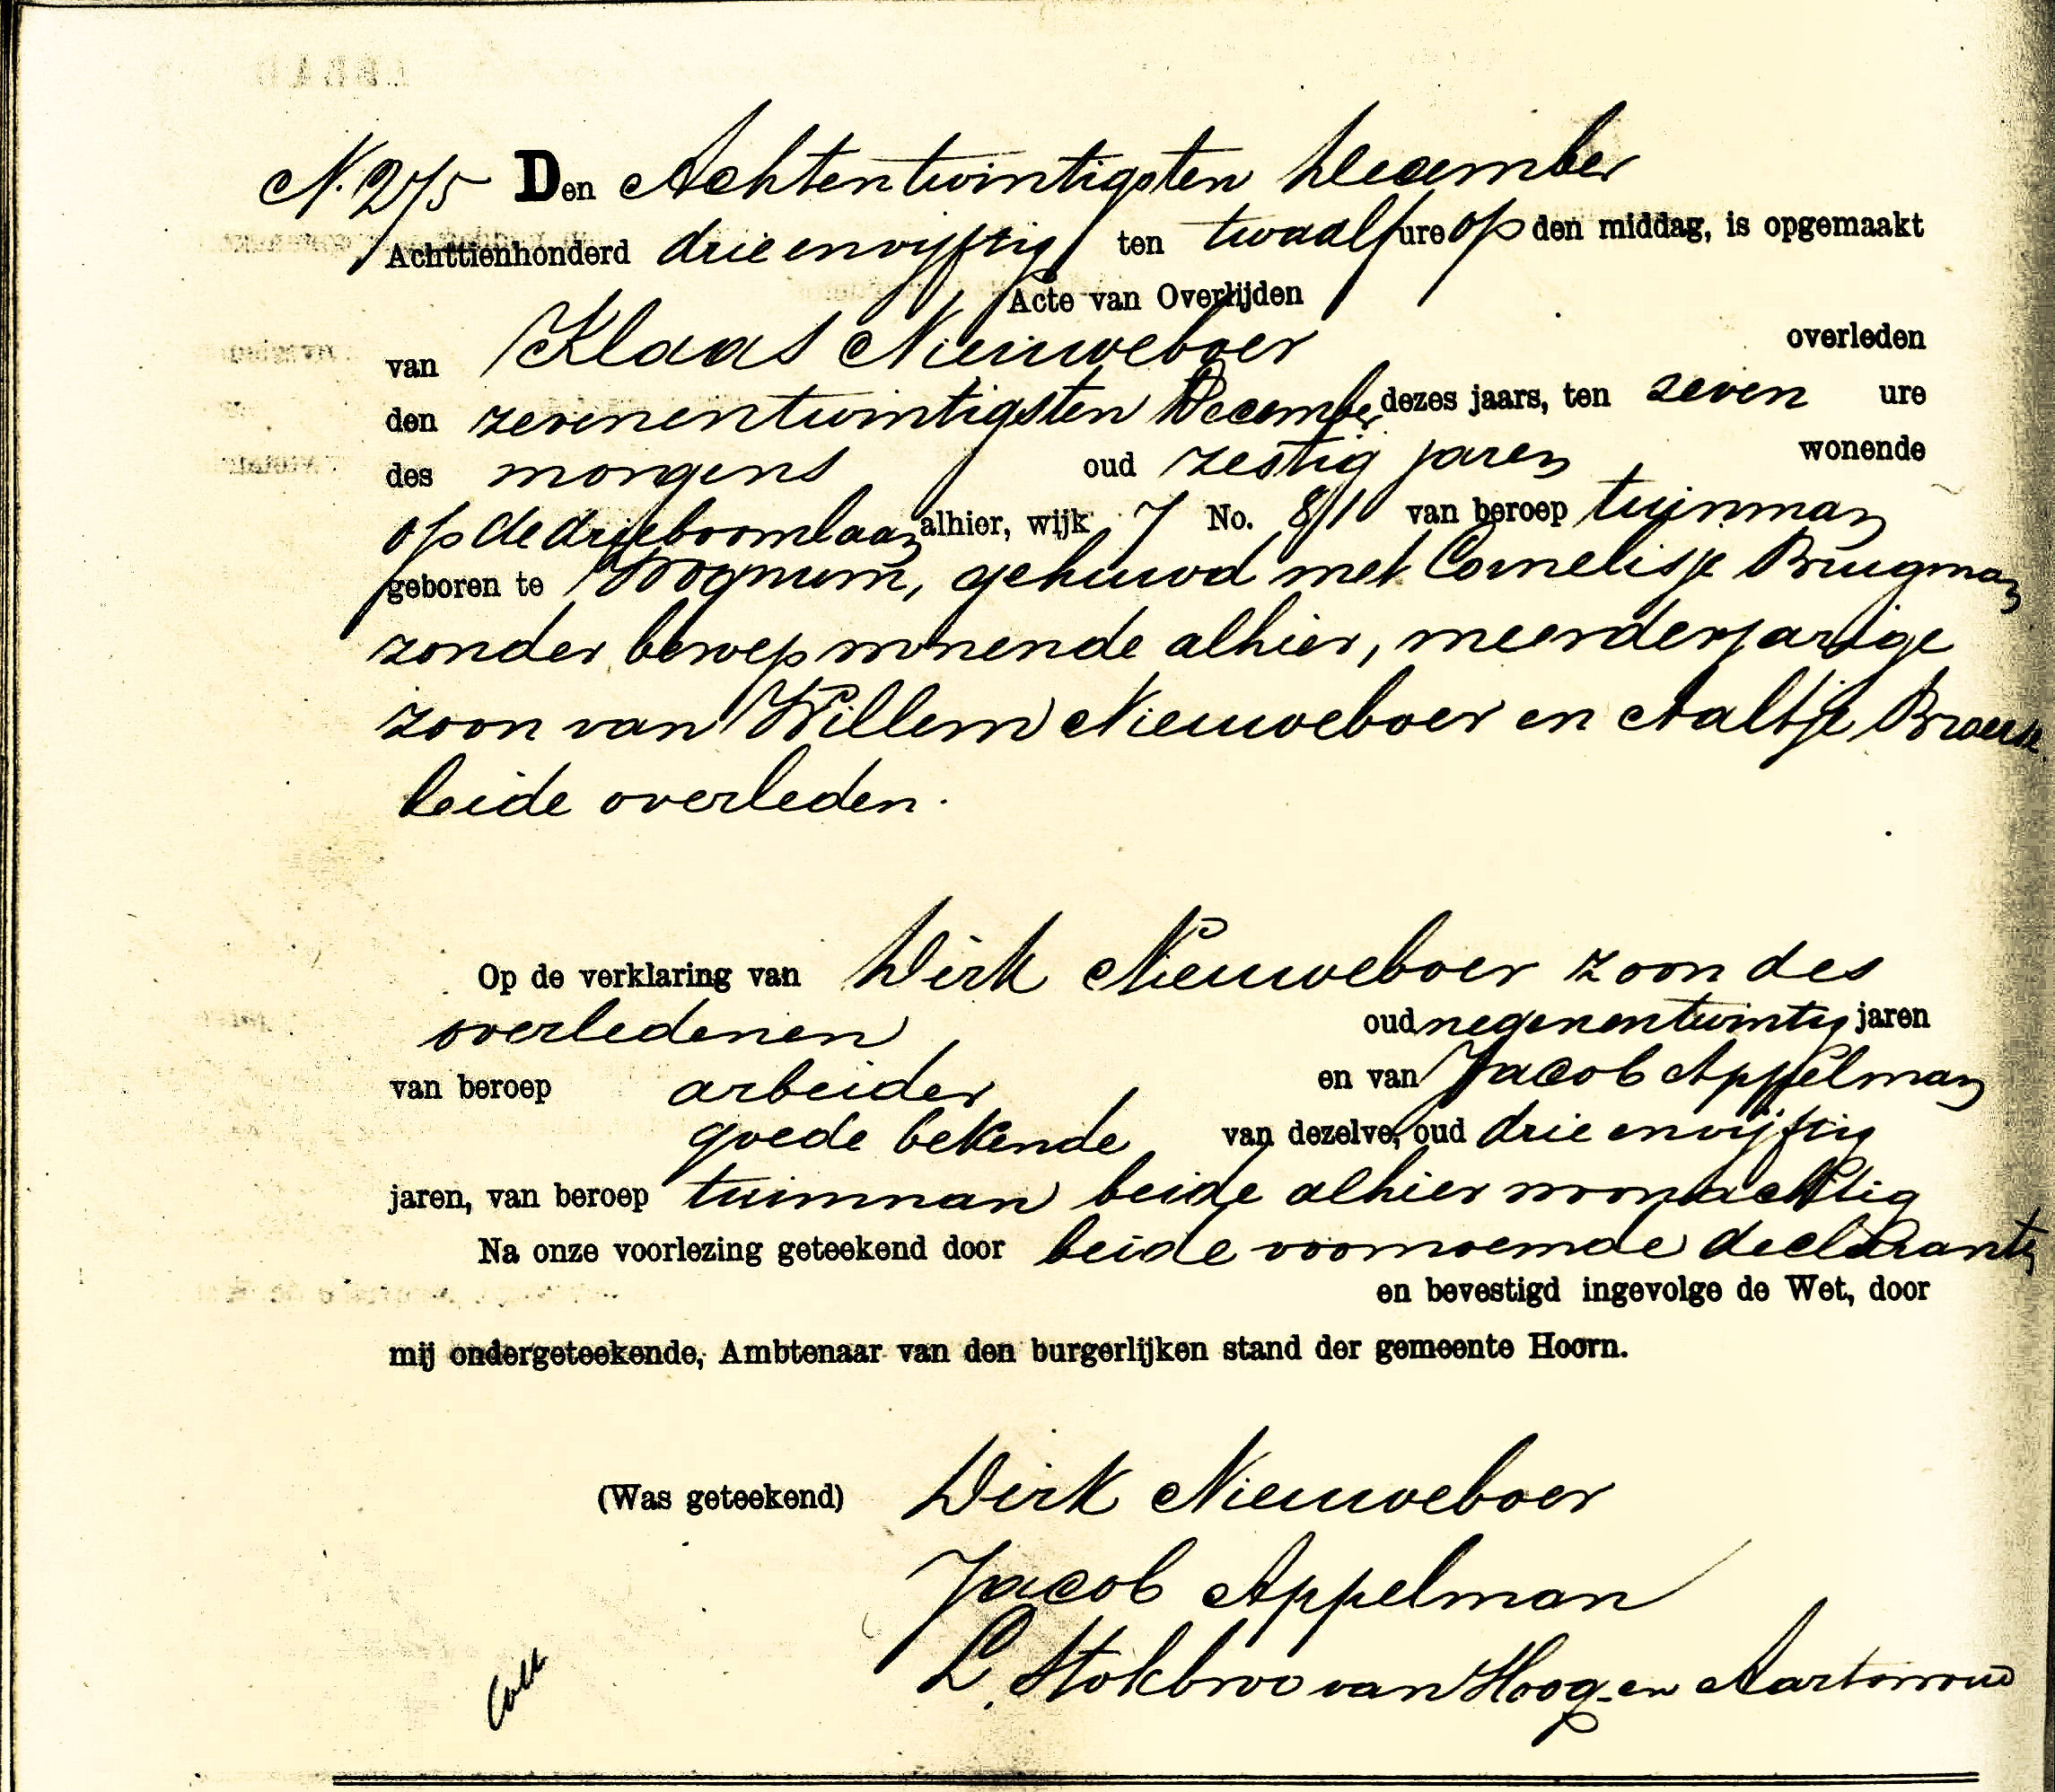 N. 275 Den Achtentwintigsten December
Achttienhonderd drieenvijftig ten twaalf ure op den middag, is opgemaakt
Acte van Overlijden
van Klaas Nieuweboer overleden
den zevenentwintigsten December dezes jaars, ten zeven ure
des morgens oud zestig jaren wonende
op de drieboomlaan alhier, wijk 7 No. 81 van beroep tuinman
geboren te Wognum, gehuwd met Cornelisje Brugman
zonder beroep wonende alhier, meerderjarige
zoon van Willem Nieuweboer en Aaltje
beide overleden.
Op de verklaring van Dirk Nieuweboer zoon des
overledenen oud negenentwintig jaren
van beroep arbeider en van Jacob Appelman
goede bekende van dezelve, oud drieenvijftig
jaren, van beroep tuinman beide alhier woonachtig
Na onze voorlezing geteekend door beide voornoemde declaranten
en bevestigd ingevolge de Wet, door
mij ondergeteekende, Ambtenaar van den burgerlijken stand der gemeente Hoorn.
(Was geteekend) Dirk Nieuweboer
Jacob Appelman
L. Stokbroo van Hoog- en Aartswoud